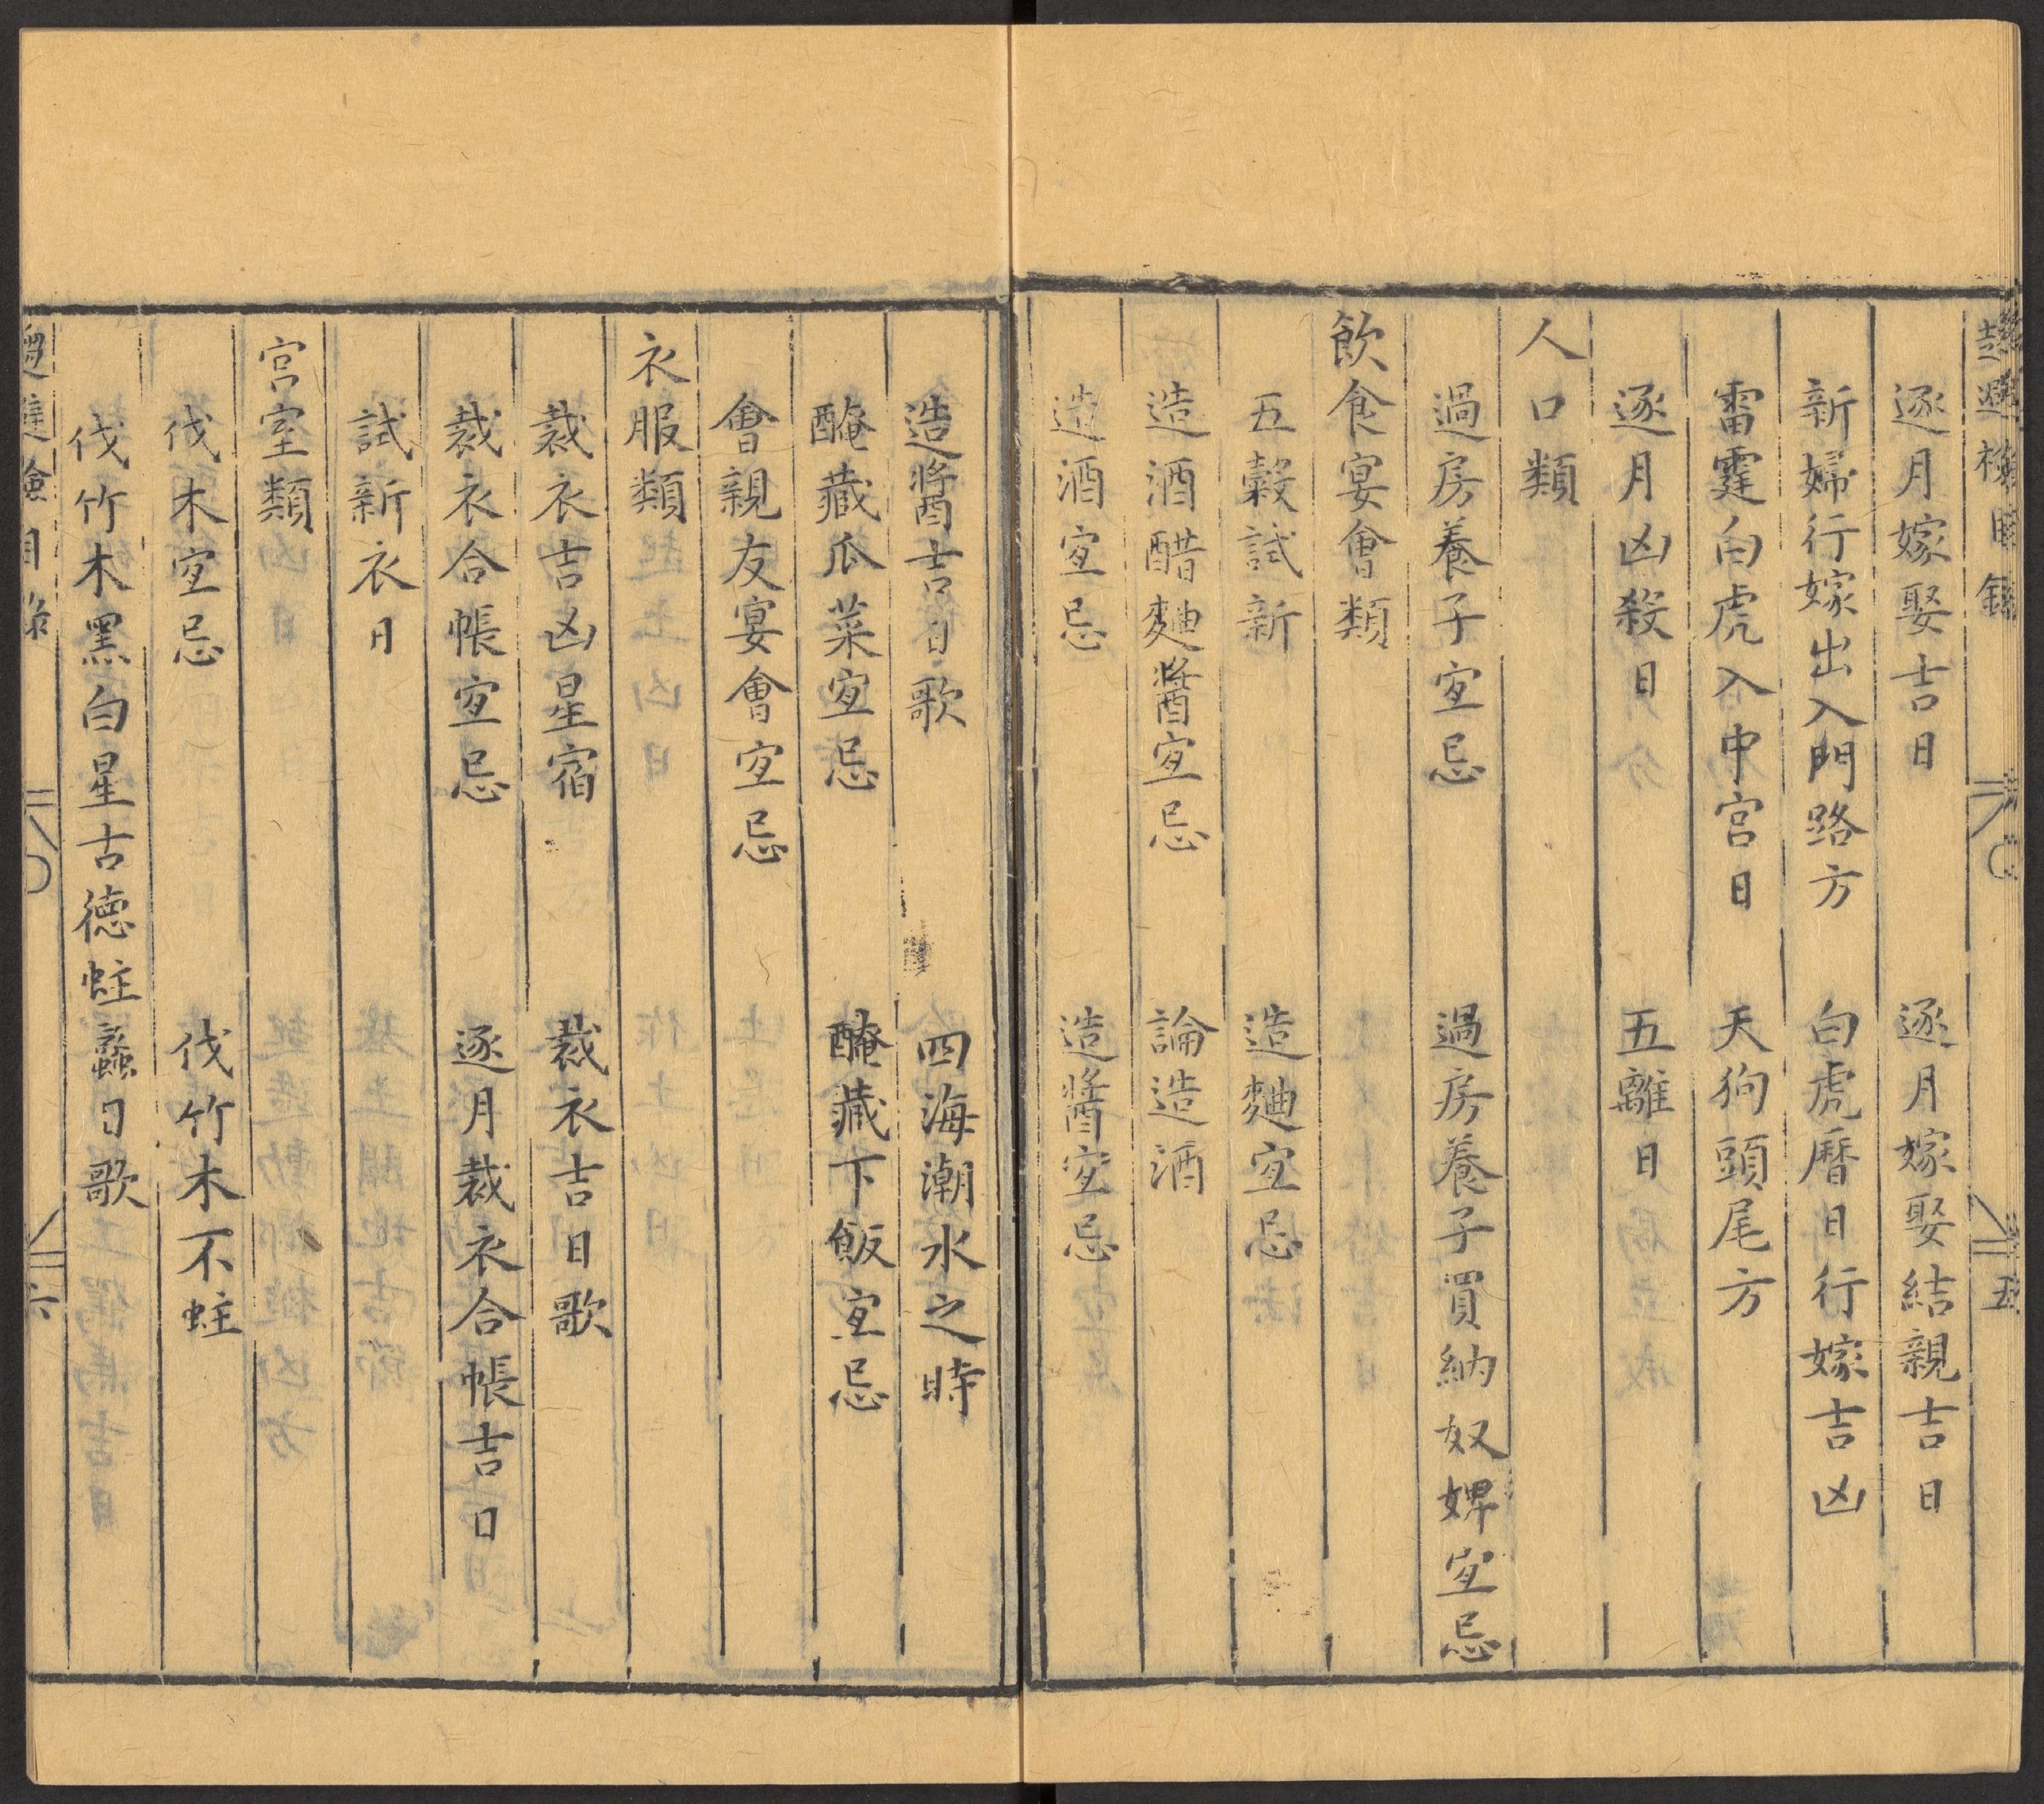 逐月嫁娶吉日　逐月嫁娶結親吉日
新婦行嫁出入門路方　白虎曆日行嫁吉凶
雷霆白虎入中宮日　天狗頭尾方
逐月凶殺日　五離日
人口類
過房養子宐忌　過房養子買納奴婢宐忌
飲食宴會類
五糓試新　造麯宐忌
造酒醋麯醬宐忌　論造酒
造酒宐忌　造醬宐忌
造醬吉日歌　四海潮水之時
醃藏瓜菜宐忌　醃藏下飯宐忌
會親友宴會宐忌
衣服類
裁衣吉凶星宿　裁衣吉日歌
裁衣合帳宐忌　逐月裁衣合帳吉日
試新衣日
宮室類
伐木宐忌　伐竹木不蛀
伐竹木黑白星古德蛀蠡日歌
六